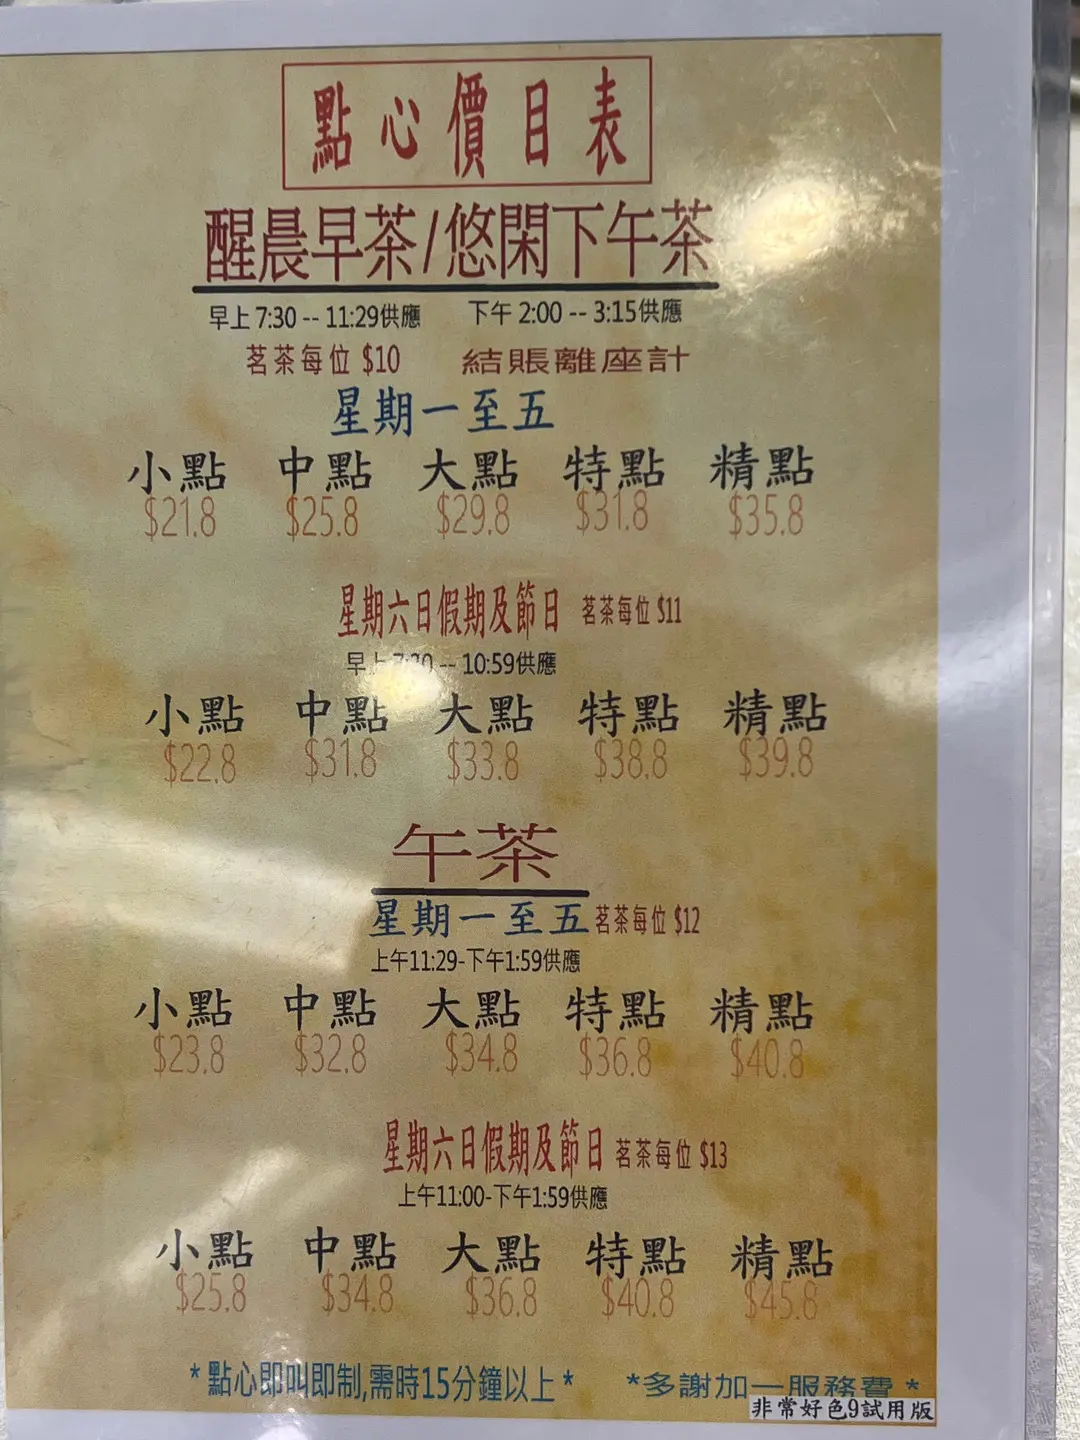 點心價目表
醒晨早茶/悠閑下午茶
早上 7:30 -- 11:29供應 下午 2:00 -- 3:15供應
茗茶每位 $10 結賬離座計
星期一至五
小點 中點 大點 特點 精點
$21.8 $25.8 $29.8 $31.8 $35.8
星期六日假期及節日 茗茶每位 $11
早上 7:30 -- 10:59供應
小點 中點 大點 特點 精點
$22.8 $31.8 $33.8 $38.8 $39.8
午茶
星期一至五 茗茶每位 $12
上午11:29-下午1:59供應
小點 中點 大點 特點 精點
$23.8 $32.8 $34.8 $36.8 $40.8
星期六日假期及節日 茗茶每位 $13
上午11:00-下午1:59供應
小點 中點 大點 特點 精點
$25.8 $34.8 $36.8 $40.8 $45.8
*點心即叫即制,需時15分鐘以上* *多謝加一服務費*
非常好色9試用版